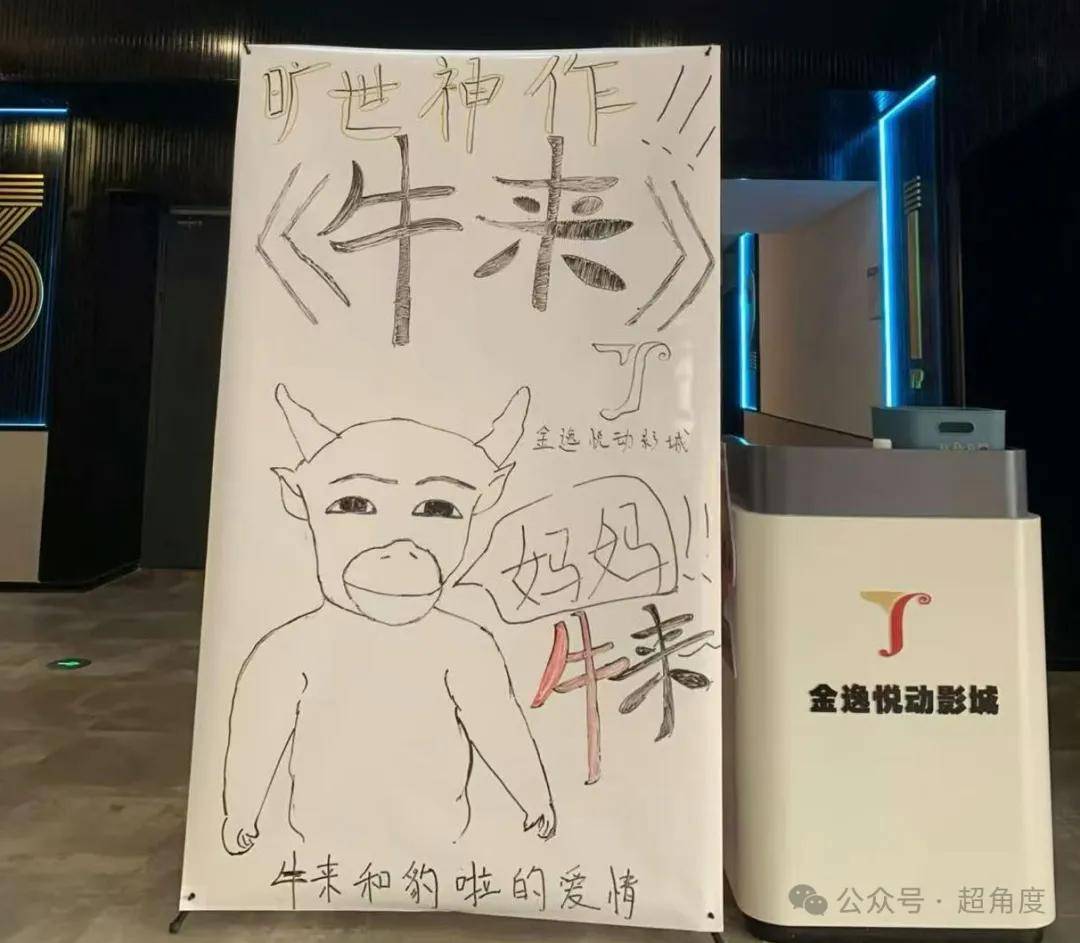 旷世神作!!!
《牛来》
金逸悦动影城
妈妈!!
牛来
牛来和豹啦的爱情
金逸悦动影城
公众号·超角度